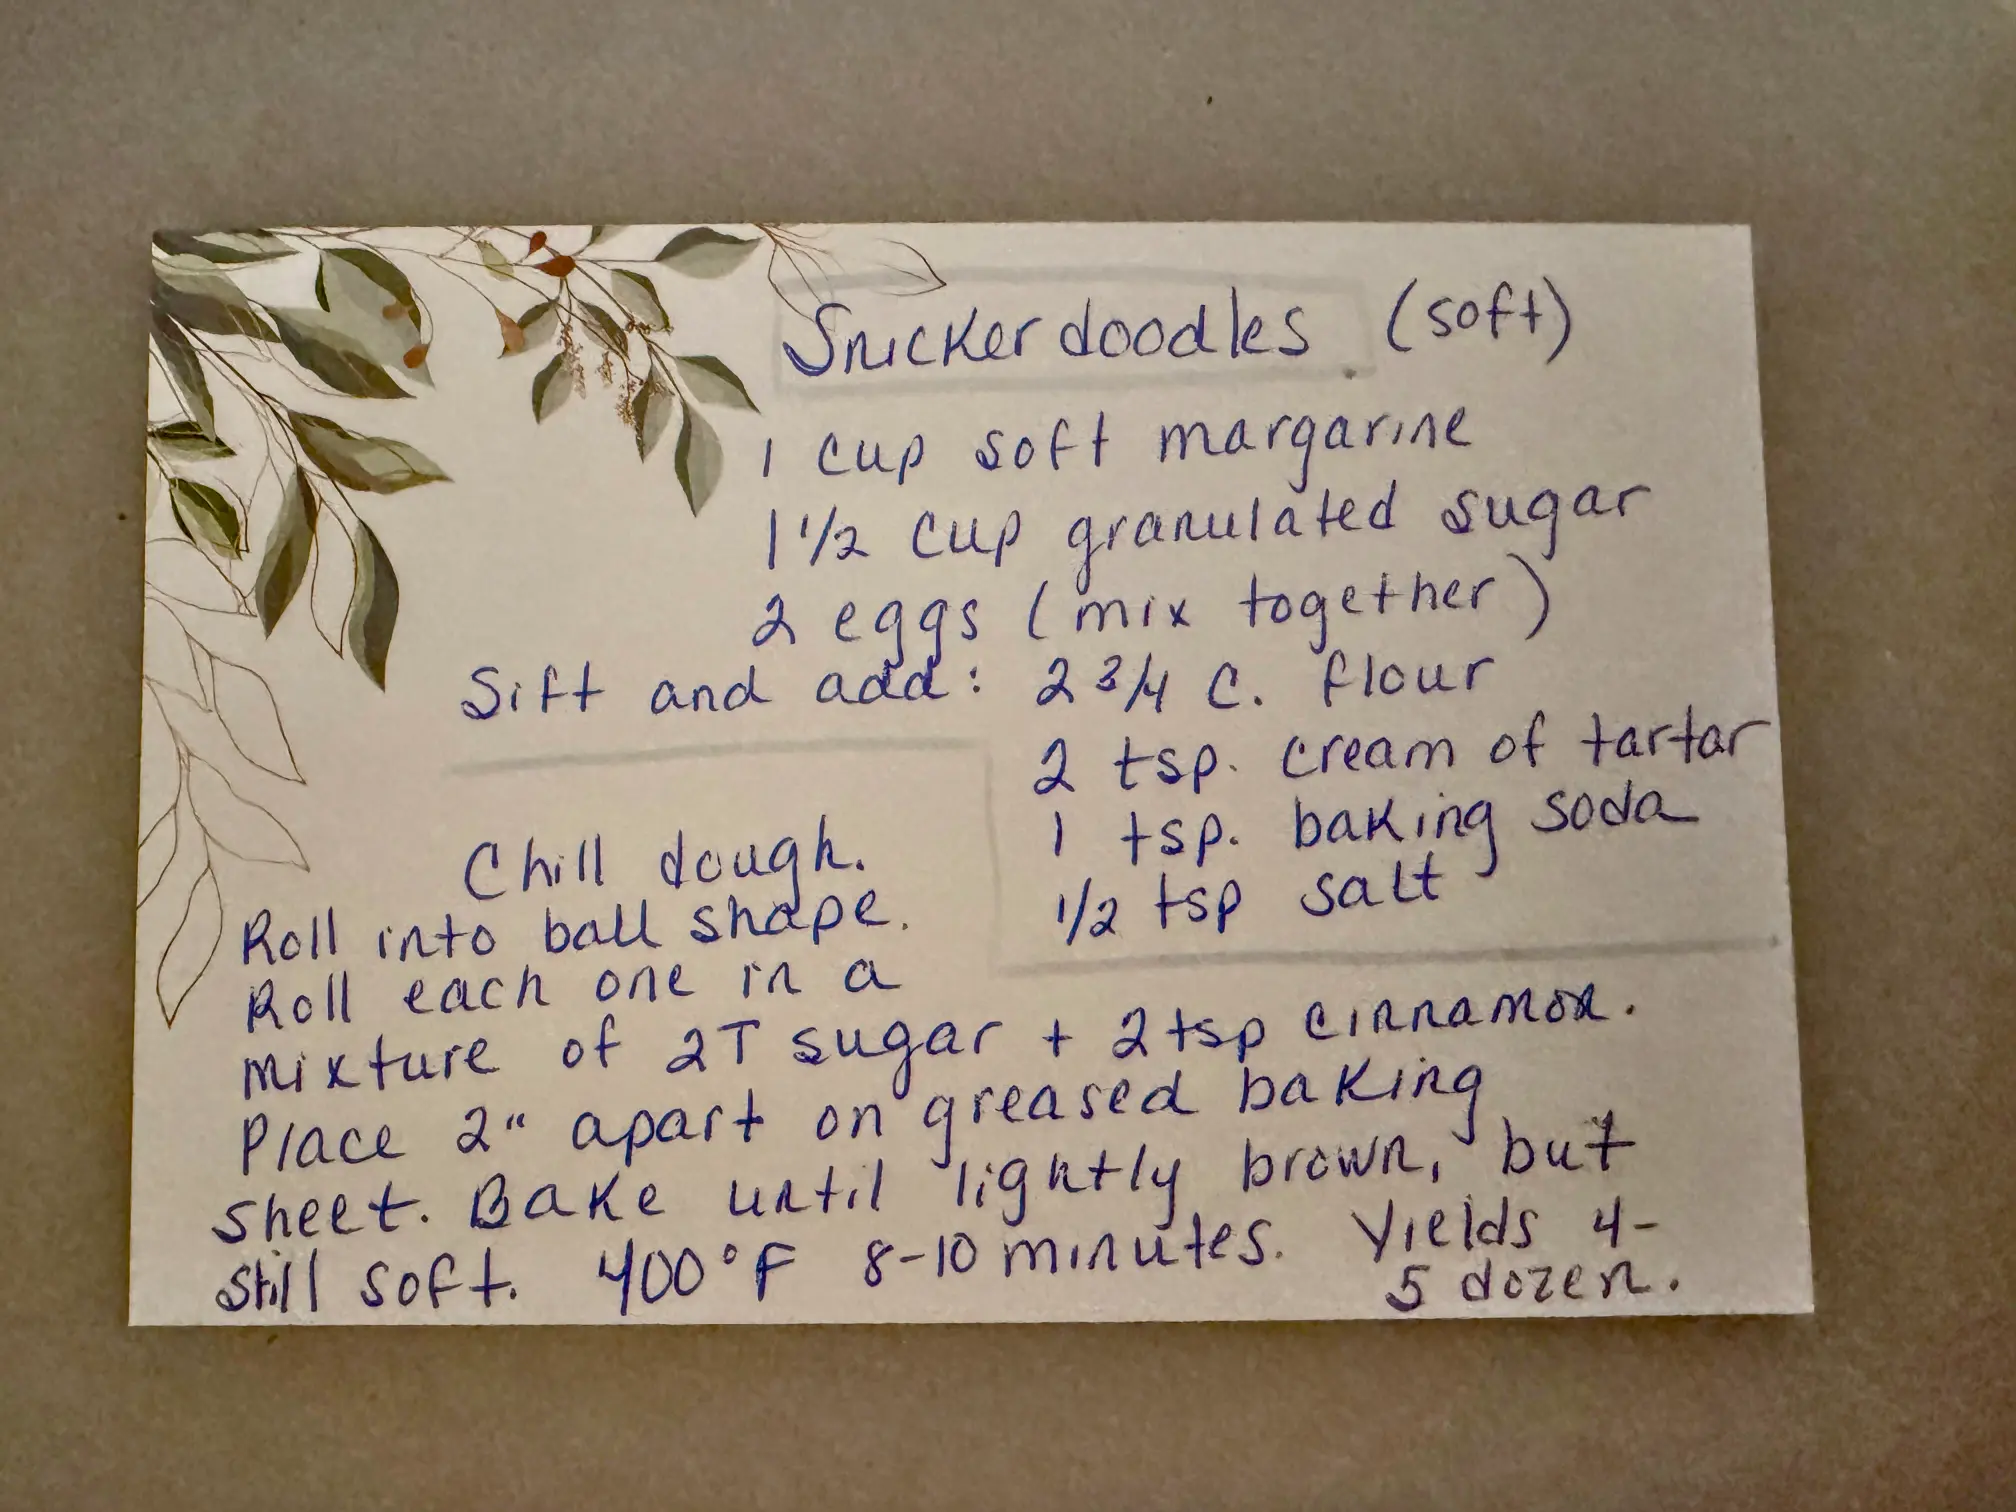 Snickerdoodles (soft)
1 cup soft margarine
1 1/2 cup granulated sugar
2 eggs (mix together)
Sift and add: 2 3/4 c. flour
2 tsp. cream of tartar
1 tsp. baking soda
1/2 tsp salt
Chill dough.
Roll into ball shape.
Roll each one in a
mixture of 2T sugar + 2 tsp cinnamon.
Place 2" apart on greased baking
sheet. Bake until lightly brown, but
still soft. 400°F 8-10 minutes. Yields 4-
5 dozen.